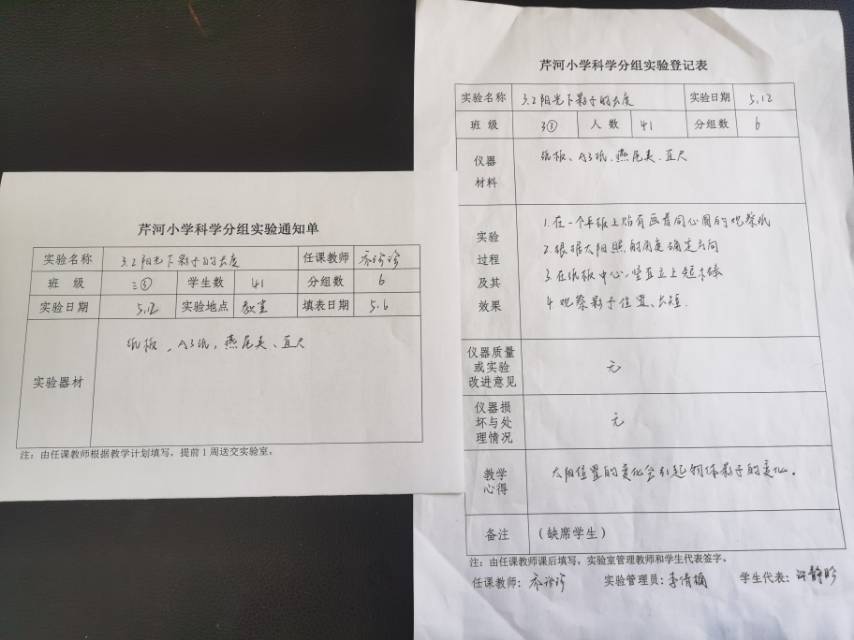 芹河小学科学分组实验通知单
实验名称 3.2阳光下影子的长度 任课教师
班 级 3⑤ 学生数 41 分组数 6
实验日期 5.12 实验地点 教室 填表日期 5.6
实验器材 纸板、A3纸、燕尾夹、直尺
注：由任课教师根据教学计划填写，提前1周送交实验室。
芹河小学科学分组实验登记表
实验名称 3.2阳光下影子的长度 实验日期 5.12
班 级 3⑤ 人 数 41 分组数 6
仪器
材料
纸板、A3纸、燕尾夹、直尺
实验
过程
及其
效果
1.在一个平板上贴有画着同心圆的观察纸
2.根据太阳照的角度确定方向
3.在纸板中心，竖直立上短木棒
4.观察影子位置、长短.
仪器质量
或实验
改进意见
无
仪器损
坏与处
理情况
无
教学
心得
太阳位置的变化会引起物体影子的变化。
备注 (缺席学生)
注：由任课教师课后填写，实验室管理教师和学生代表签字。
任课教师： 实验管理员：李倩楠 学生代表：